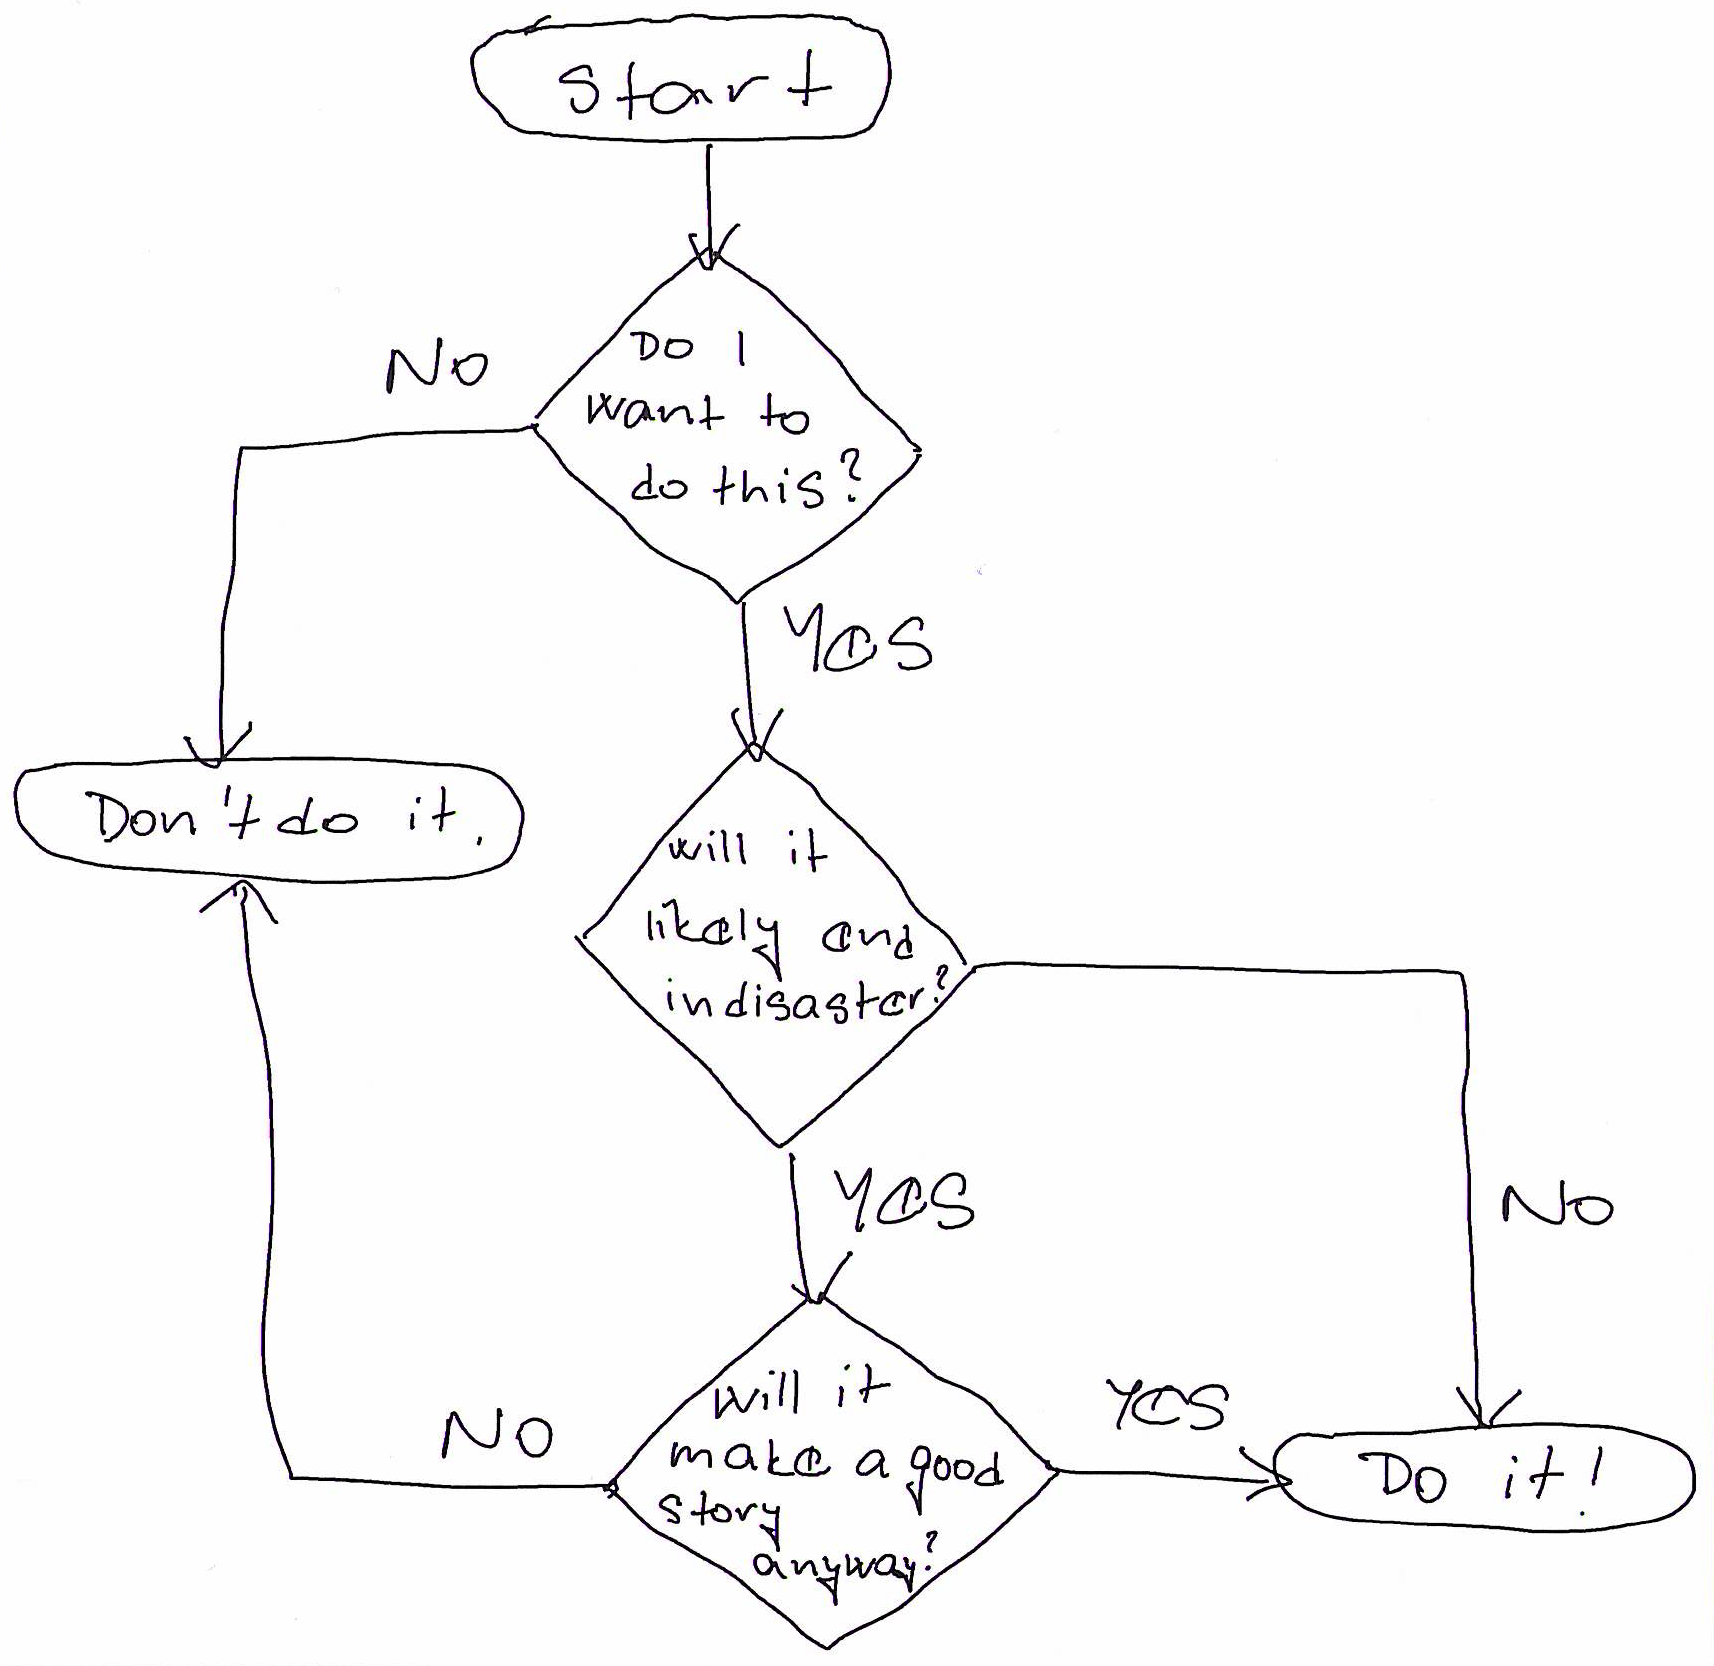 Start
Do I
want to
do this?
No
Yes
Don't do it.
will it
likely end
in disaster?
Yes
No
Will it
make a good
story
anyway?
No
Yes
Do it!